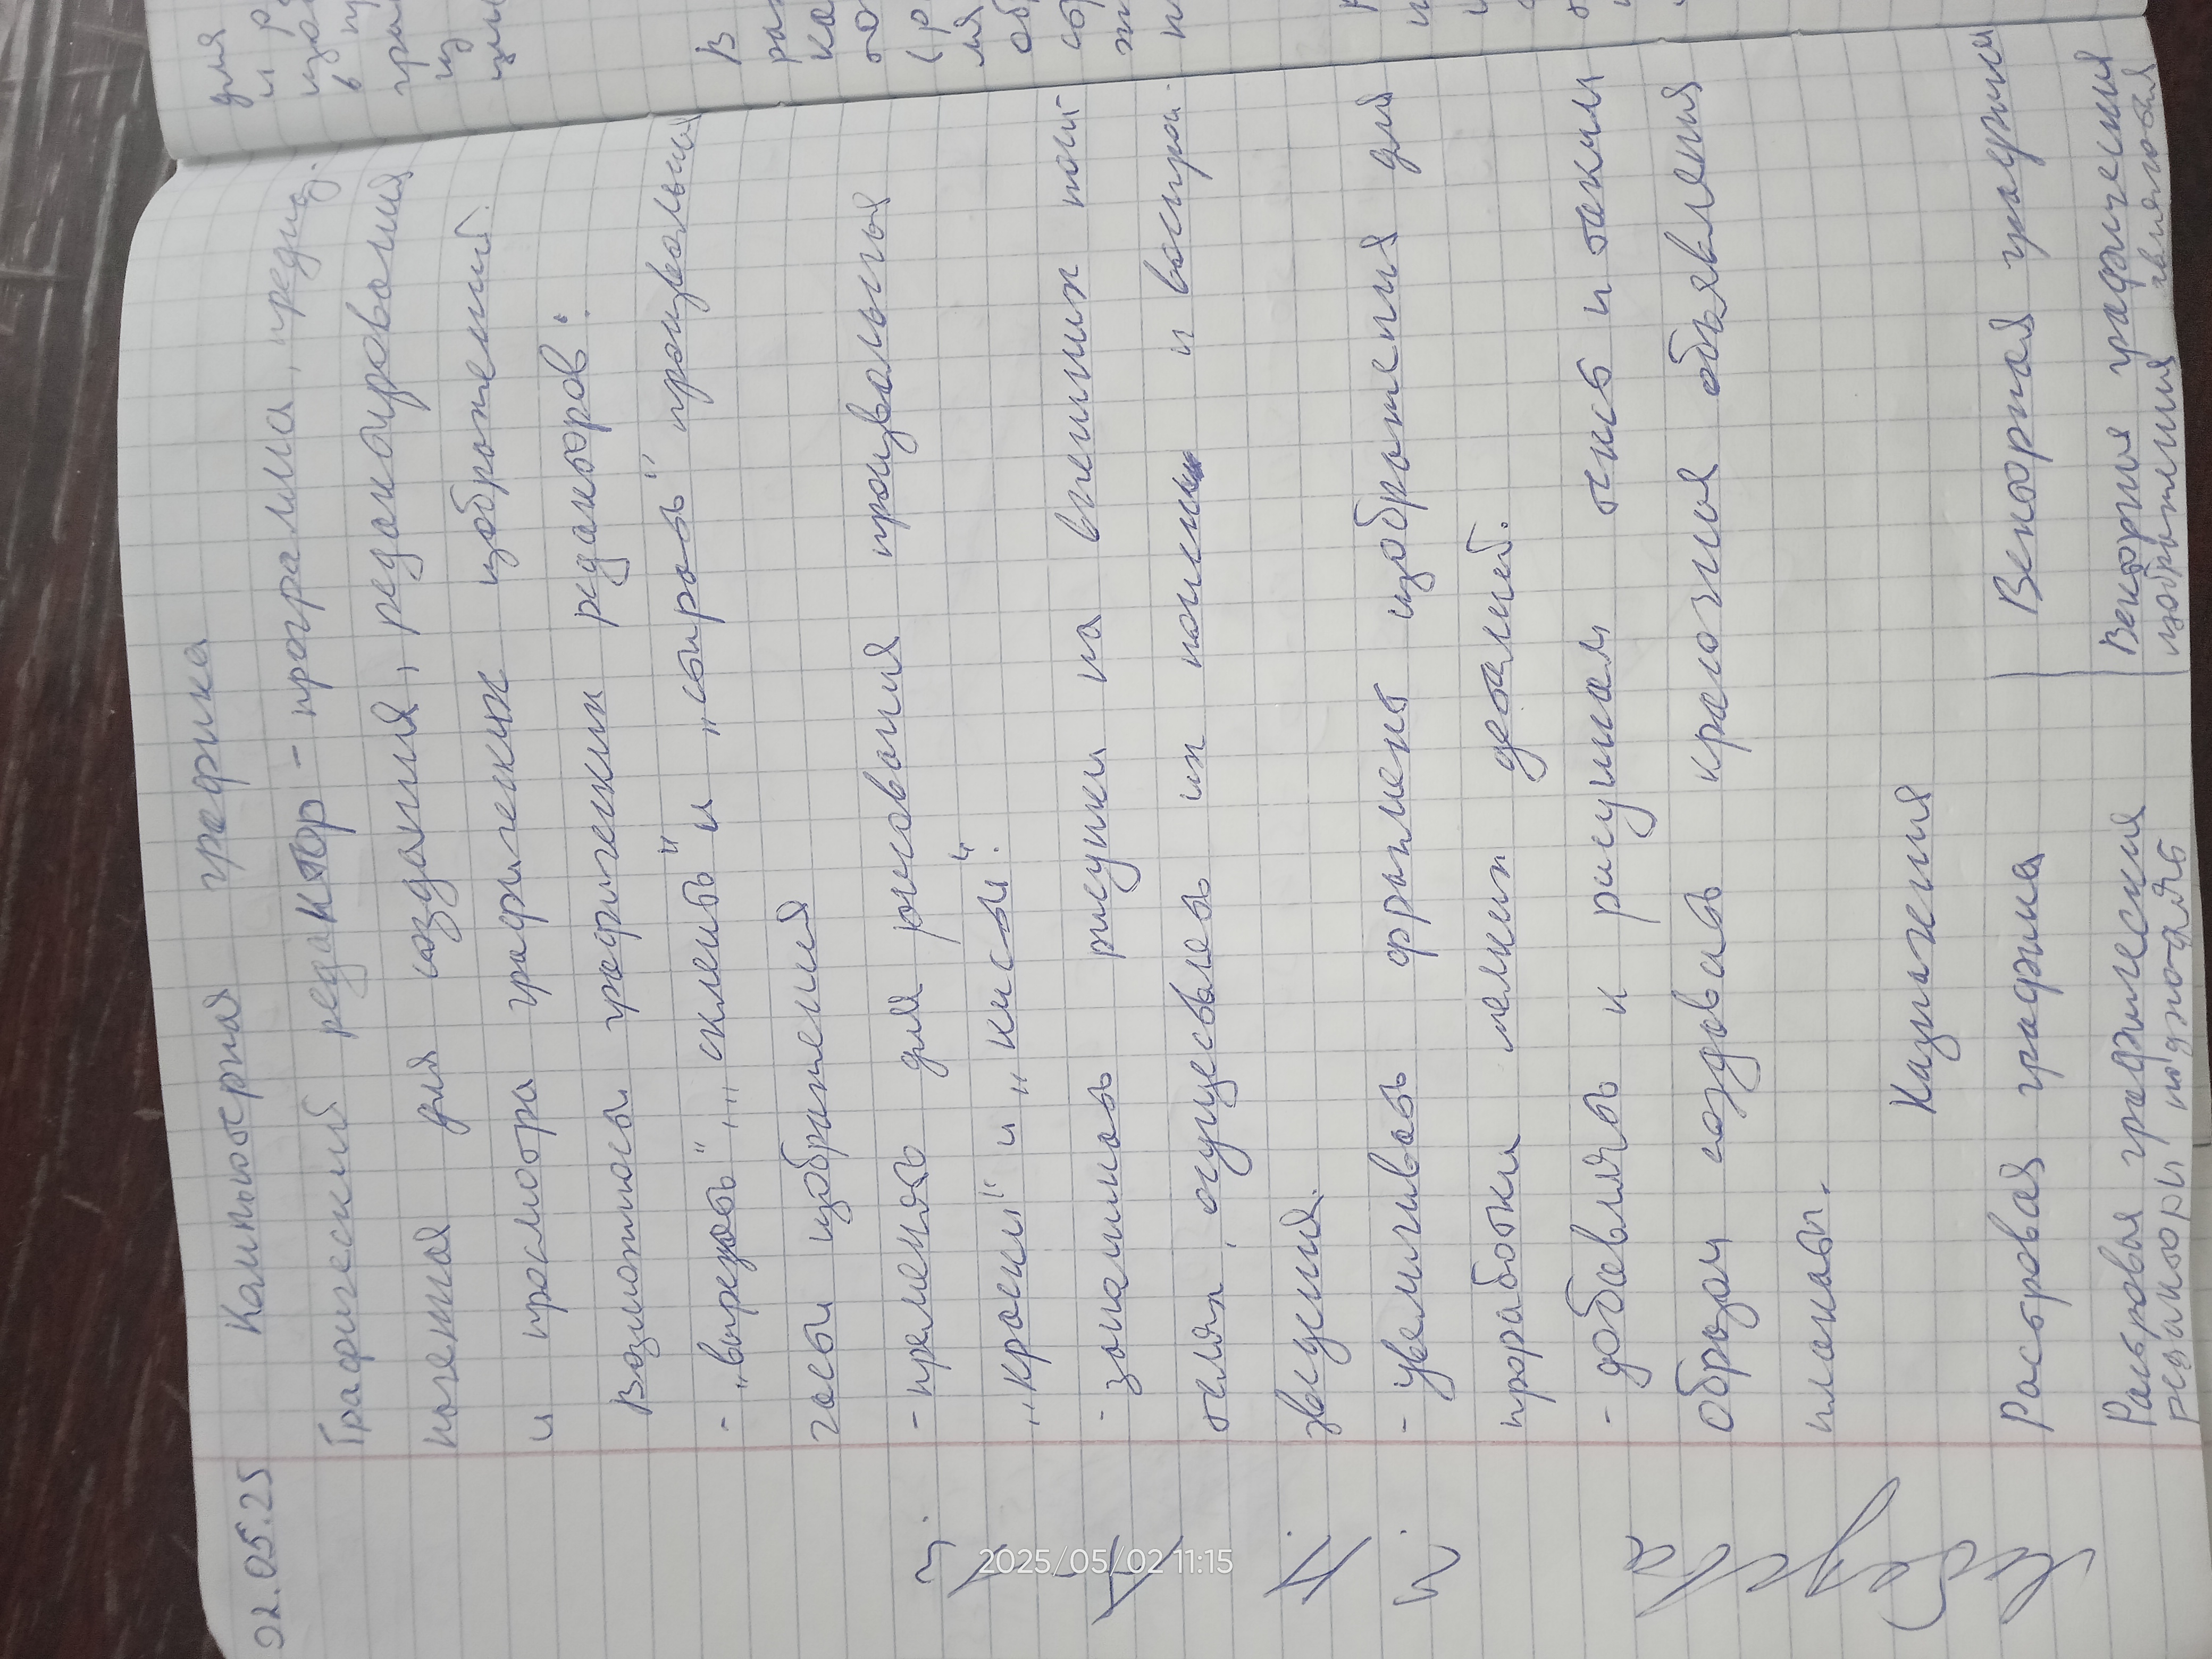 02.05.25 Компьютерная графика
Графический редактор - программа, предназ.
наченная для создания, редактирования
и просмотра графических изображений.
Возможносы графических редакторов:
- „вырезать", „склеить" и „стирать" произвольные
часы изображения
- пременять для рисования произвольные
„краски" и „кисы".
- запоминать рисунки на внешних носи
телях, осущесвлять их поиск и воспро-
зведения.
- увеличивать фрагмент изображения для
проработки мелких деталей.
- добавлять к рисункам текст и таким
образом создавать красочные объявления
плакаты.
Назначения
Растровая графика | Векторная графики
Растровые графические | Векторные графические
редакторы | изображения
для
и р
в
из
В
ка
(р
об
2025/05/02 11:15